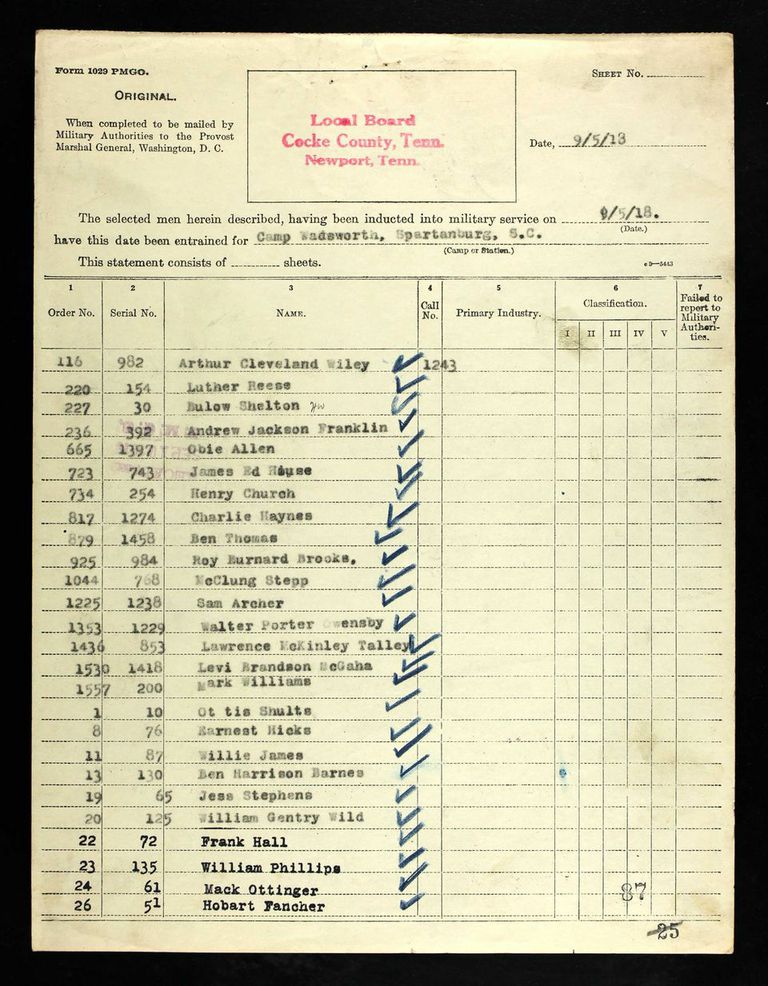 Form 1029 PMGO.
SHEET No.
ORIGINAL.
When completed to be mailed by
Military Authorities to the Provost
Marshal General, Washington, D. C.
Local Board
Cocke County, Tenn.
Newport, Tenn.
Date, 9/5/18
The selected men herein described, having been inducted into military service on 9/5/18.
(Date.)
have this date been entrained for Camp Wadsworth, Spartanburg, S.C.
(Camp or Station.)
This statement consists of sheets.
c 3—5443
1 2 3 4 5 6 7
Order No. Serial No. NAME. Call No. Primary Industry. Classification. Failed to report to Military Authorities.
I II III IV V
116 982 Arthur Cleveland Wiley 1243
220 154 Luther Reese
227 30 Bulow Shelton
236 392 Andrew Jackson Franklin
665 1397 Obie Allen
723 743 James Ed House
734 254 Henry Church
817 1274 Charlie Haynes
879 1458 Ben Thomas
925 984 Roy Burnard Brooks,
1044 768 McClung Stepp
1225 1238 Sam Archer
1353 1229 Walter Porter Owensby
1436 853 Lawrence McKinley Talley
1530 1418 Levi Brandson McGaha
1557 200 Mark Williams
1 10 Ot tis Shults
8 76 Earnest Hicks
11 87 Willie James
13 130 Ben Harrison Barnes
19 65 Jess Stephens
20 125 William Gentry Wild
22 72 Frank Hall
23 135 William Phillips
24 61 Mack Ottinger
26 51 Hobart Fancher
37
25